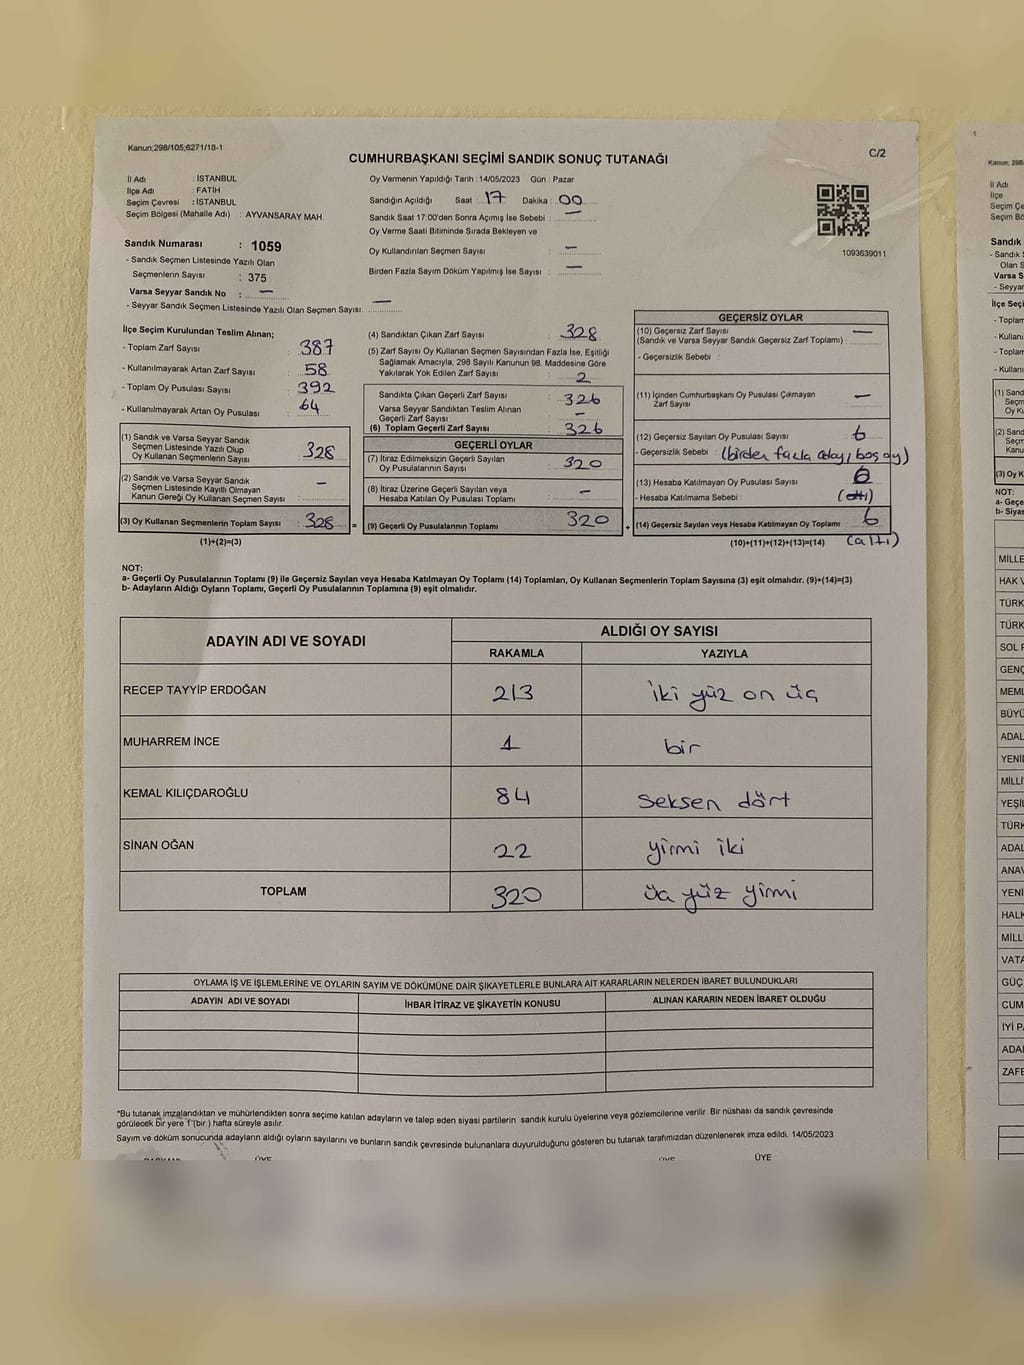 Kanun;298/105;6271/18-1
CUMHURBAŞKANI SEÇİMİ SANDIK SONUÇ TUTANAĞI
C/2
İl Adı : İSTANBUL
İlçe Adı : FATİH
Seçim Çevresi : İSTANBUL
Seçim Bölgesi (Mahalle Adı) : AYVANSARAY MAH.
Sandık Numarası : 1059
- Sandık Seçmen Listesinde Yazılı Olan
Seçmenlerin Sayısı : 375
Varsa Seyyar Sandık No : —
- Seyyar Sandık Seçmen Listesinde Yazılı Olan Seçmen Sayısı: —
Oy Vermenin Yapıldığı Tarih : 14/05/2023 Gün : Pazar
Sandığın Açıldığı Saat : 17 Dakika : 00
Sandık Saat 17:00'den Sonra Açımış İse Sebebi : —
Oy Verme Saati Bitiminde Sırada Bekleyen ve
Oy Kullandırılan Seçmen Sayısı : —
Birden Fazla Sayım Döküm Yapılmış İse Sayısı : —
1093639011
İlçe Seçim Kurulundan Teslim Alınan;
- Toplam Zarf Sayısı : 387
- Kullanılmayarak Artan Zarf Sayısı : 58
- Toplam Oy Pusulası Sayısı : 392
- Kullanılmayarak Artan Oy Pusulası : 64
(1) Sandık ve Varsa Seyyar Sandık
Seçmen Listesinde Yazılı Olup
Oy Kullanan Seçmenlerin Sayısı : 328
(2) Sandık ve Varsa Seyyar Sandık
Seçmen Listesinde Kayıtlı Olmayan
Kanun Gereği Oy Kullanan Seçmen Sayısı : —
(3) Oy Kullanan Seçmenlerin Toplam Sayısı : 328 =
(1)+(2)=(3)
(4) Sandıktan Çıkan Zarf Sayısı : 328
(5) Zarf Sayısı Oy Kullanan Seçmen Sayısından Fazla İse, Eşitliği
Sağlamak Amacıyla, 298 Sayılı Kanunun 98. Maddesine Göre
Yakılarak Yok Edilen Zarf Sayısı : 2
Sandıkta Çıkan Geçerli Zarf Sayısı : 326
Varsa Seyyar Sandıktan Teslim Alınan
Geçerli Zarf Sayısı : —
(6) Toplam Geçerli Zarf Sayısı : 326
GEÇERLİ OYLAR
(7) İtiraz Edilmeksizin Geçerli Sayılan
Oy Pusulalarının Sayısı : 320
(8) İtiraz Üzerine Geçerli Sayılan veya
Hesaba Katılan Oy Pusulası Toplamı : —
(9) Geçerli Oy Pusulalarının Toplamı 320 +
GEÇERSİZ OYLAR
(10) Geçersiz Zarf Sayısı
(Sandık ve Varsa Seyyar Sandık Geçersiz Zarf Toplamı) : —
- Geçersizlik Sebebi :
(11) İçinden Cumhurbaşkanı Oy Pusulası Çıkmayan
Zarf Sayısı : —
(12) Geçersiz Sayılan Oy Pusulası Sayısı : 6
- Geçersizlik Sebebi : (birden fazla aday, boş oy)
(13) Hesaba Katılmayan Oy Pusulası Sayısı :
- Hesaba Katılmama Sebebi : (altı)
(14) Geçersiz Sayılan veya Hesaba Katılmayan Oy Toplamı : 6
(10)+(11)+(12)+(13)=(14) (altı)
NOT:
a- Geçerli Oy Pusulalarının Toplamı (9) ile Geçersiz Sayılan veya Hesaba Katılmayan Oy Toplamı (14) Toplamları, Oy Kullanan Seçmenlerin Toplam Sayısına (3) eşit olmalıdır. (9)+(14)=(3)
b- Adayların Aldığı Oyların Toplamı, Geçerli Oy Pusulalarının Toplamına (9) eşit olmalıdır.
ADAYIN ADI VE SOYADI
ALDIĞI OY SAYISI
RAKAMLA YAZIYLA
RECEP TAYYİP ERDOĞAN 213 iki yüz on üç
MUHARREM İNCE 1 bir
KEMAL KILIÇDAROĞLU 84 seksen dört
SİNAN OĞAN 22 yirmi iki
TOPLAM 320 üç yüz yirmi
OYLAMA İŞ VE İŞLEMLERİNE VE OYLARIN SAYIM VE DÖKÜMÜNE DAİR ŞİKAYETLERLE BUNLARA AİT KARARLARIN NELERDEN İBARET BULUNDUKLARI
ADAYIN ADI VE SOYADI İHBAR İTİRAZ VE ŞİKAYETİN KONUSU ALINAN KARARIN NEDEN İBARET OLDUĞU
*Bu tutanak imzalandıktan ve mühürlendikten sonra seçime katılan adayların ve talep eden siyasi partilerin sandık kurulu üyelerine veya gözlemcilerine verilir. Bir nüshası da sandık çevresinde
görülecek bir yere 1 (bir ) hafta süreyle asılır.
Sayım ve döküm sonucunda adayların aldığı oyların sayılarını ve bunların sandık çevresinde bulunanlara duyurulduğunu gösteren bu tutanak tarafımızdan düzenlenerek imza edildi. 14/05/2023
ÜYE
Kanun; 298
İl Adı
İlçe
Seçim Çe
Seçim Bö
Sandık
- Sandık
Olan S
Varsa S
- Seyyar
İlçe Seçi
- Toplam
- Kullanı
- Toplam
- Kullanı
(1) Sand
(3) Oy K
NOT:
a- Geçe
b- Siyas
MİLLE
HAK V
TÜRK
TÜRK
SOL P
GENÇ
MEML
BÜYÜ
ADAL
YENİD
MİLLİ
YEŞİL
TÜRK
ADAL
ANAV
YENİ
HALK
MİLL
VATA
GÜÇ
CUM
İYİ P
ADA
ZAFE